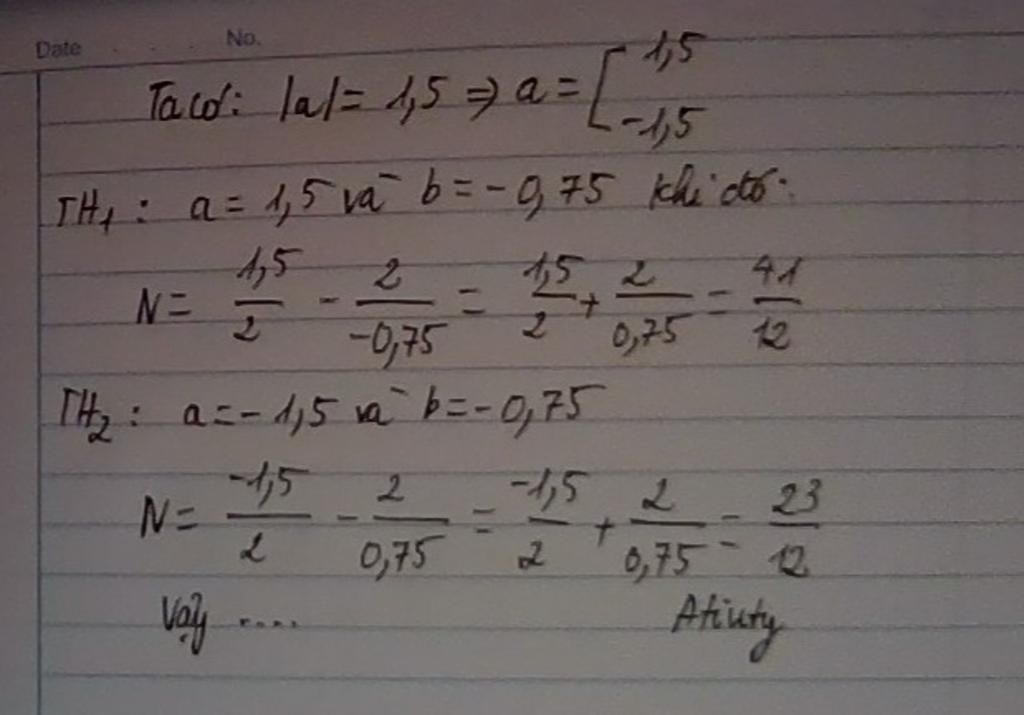 Date No.
Ta có: |a| = 1,5 ⇒ a = [ 1,5
-1,5
TH1: a = 1,5 và b = -0,75 khi đó:
N = 1,5/2 - 2/-0,75 = 1,5/2 + 2/0,75 = 41/12
TH2: a = -1,5 và b = -0,75
N = -1,5/2 - 2/0,75 = -1,5/2 + 2/0,75 = 23/12
Vậy ....